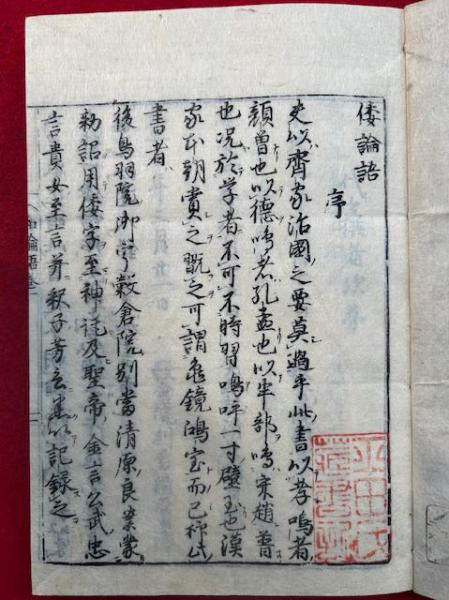 倭論語
序
夫以齊家治國之要莫過乎此書以孝鳴者
顔曽也以德鳴者孔孟也以半部鳴宋趙普
也况於学者不可不時習嗚呼一寸璧玉也漢
家本朝貴之翫之可謂亀鏡鴻宝而已称此
書者
後鳥羽院御宇穀倉院別當清原良業蒙
勅詔用倭字至神託及聖帝金言公武忠
言貴女至言并釈子芳言悉以記録之
和論語巻一